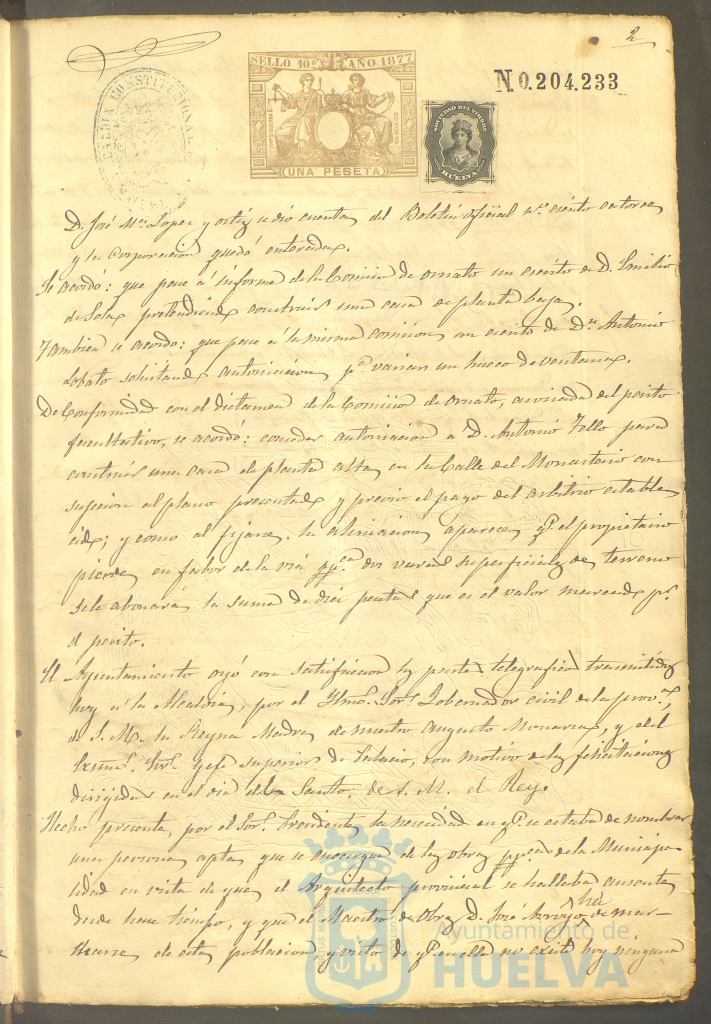 2
SELLO 10º AÑO 1877
UNA PESETA
N 0.204.233
SOCIEDAD DEL TIMBRE
HUELVA
ALCALDIA CONSTITUCIONAL
D. José Mª Lopez y ortiz se dió cuenta del Boletin oficial nº. ciento catorce
y la Corporacion quedó enterada.
Se acordó: que pase á informe de la Comision de ornato un escrito de D. Emilio
de Sola pretendiendo construir una casa de planta baja.
Tambien se acordó: que pase á la misma comision un escrito de Dn. Antonio
Lobato solicitando autorizacion pª variar un hueco de ventana.
De conformidad con el dictamen de la Comision de ornato, asesorada del perito
facultativo, se acordó: conceder autorizacion á D. Antonio Tello para
construir una casa de planta alta en la Calle del Monasterio con
sujecion al plano presentado y previo el pago del arbitrio estable
cido; y como al fijarse la alineacion aparece q.e el propietario
pierde en fabor de la via pp.ca dos varas superficiales de terreno
se le abonará la suma de diez pesetas que es el valor marcado pr.
el perito.
El Ayuntamiento oyó con satisfaccion los partes telegraficos transmitidos
hoy á la Alcaldia, por el Iltmo. Sor. Gobernador civil de la provª,
de S. M. la Reyna Madre de nuestro Augusto Monarca, y del
Exmo. Sor. Gefe superior de Palacio, con motivo de las felicitaciones
dirigidas en el dia del Santo, de S. M. el Rey.
Hecho presente por el Sor. Presidente la necesidad en q.e se estaba de nombrar
una persona apta que se encargue de las obras pp.cas de la Municipa
lidad en vista de que el Arquitecto provincial se hallaba ausente
desde hace tiempo, y que el Maestro de Obras D. José Arroyo ha de mar-
charse de esta poblacion, y visto de q.e en ella no existe hoy ninguna
Ayuntamiento de
HUELVA